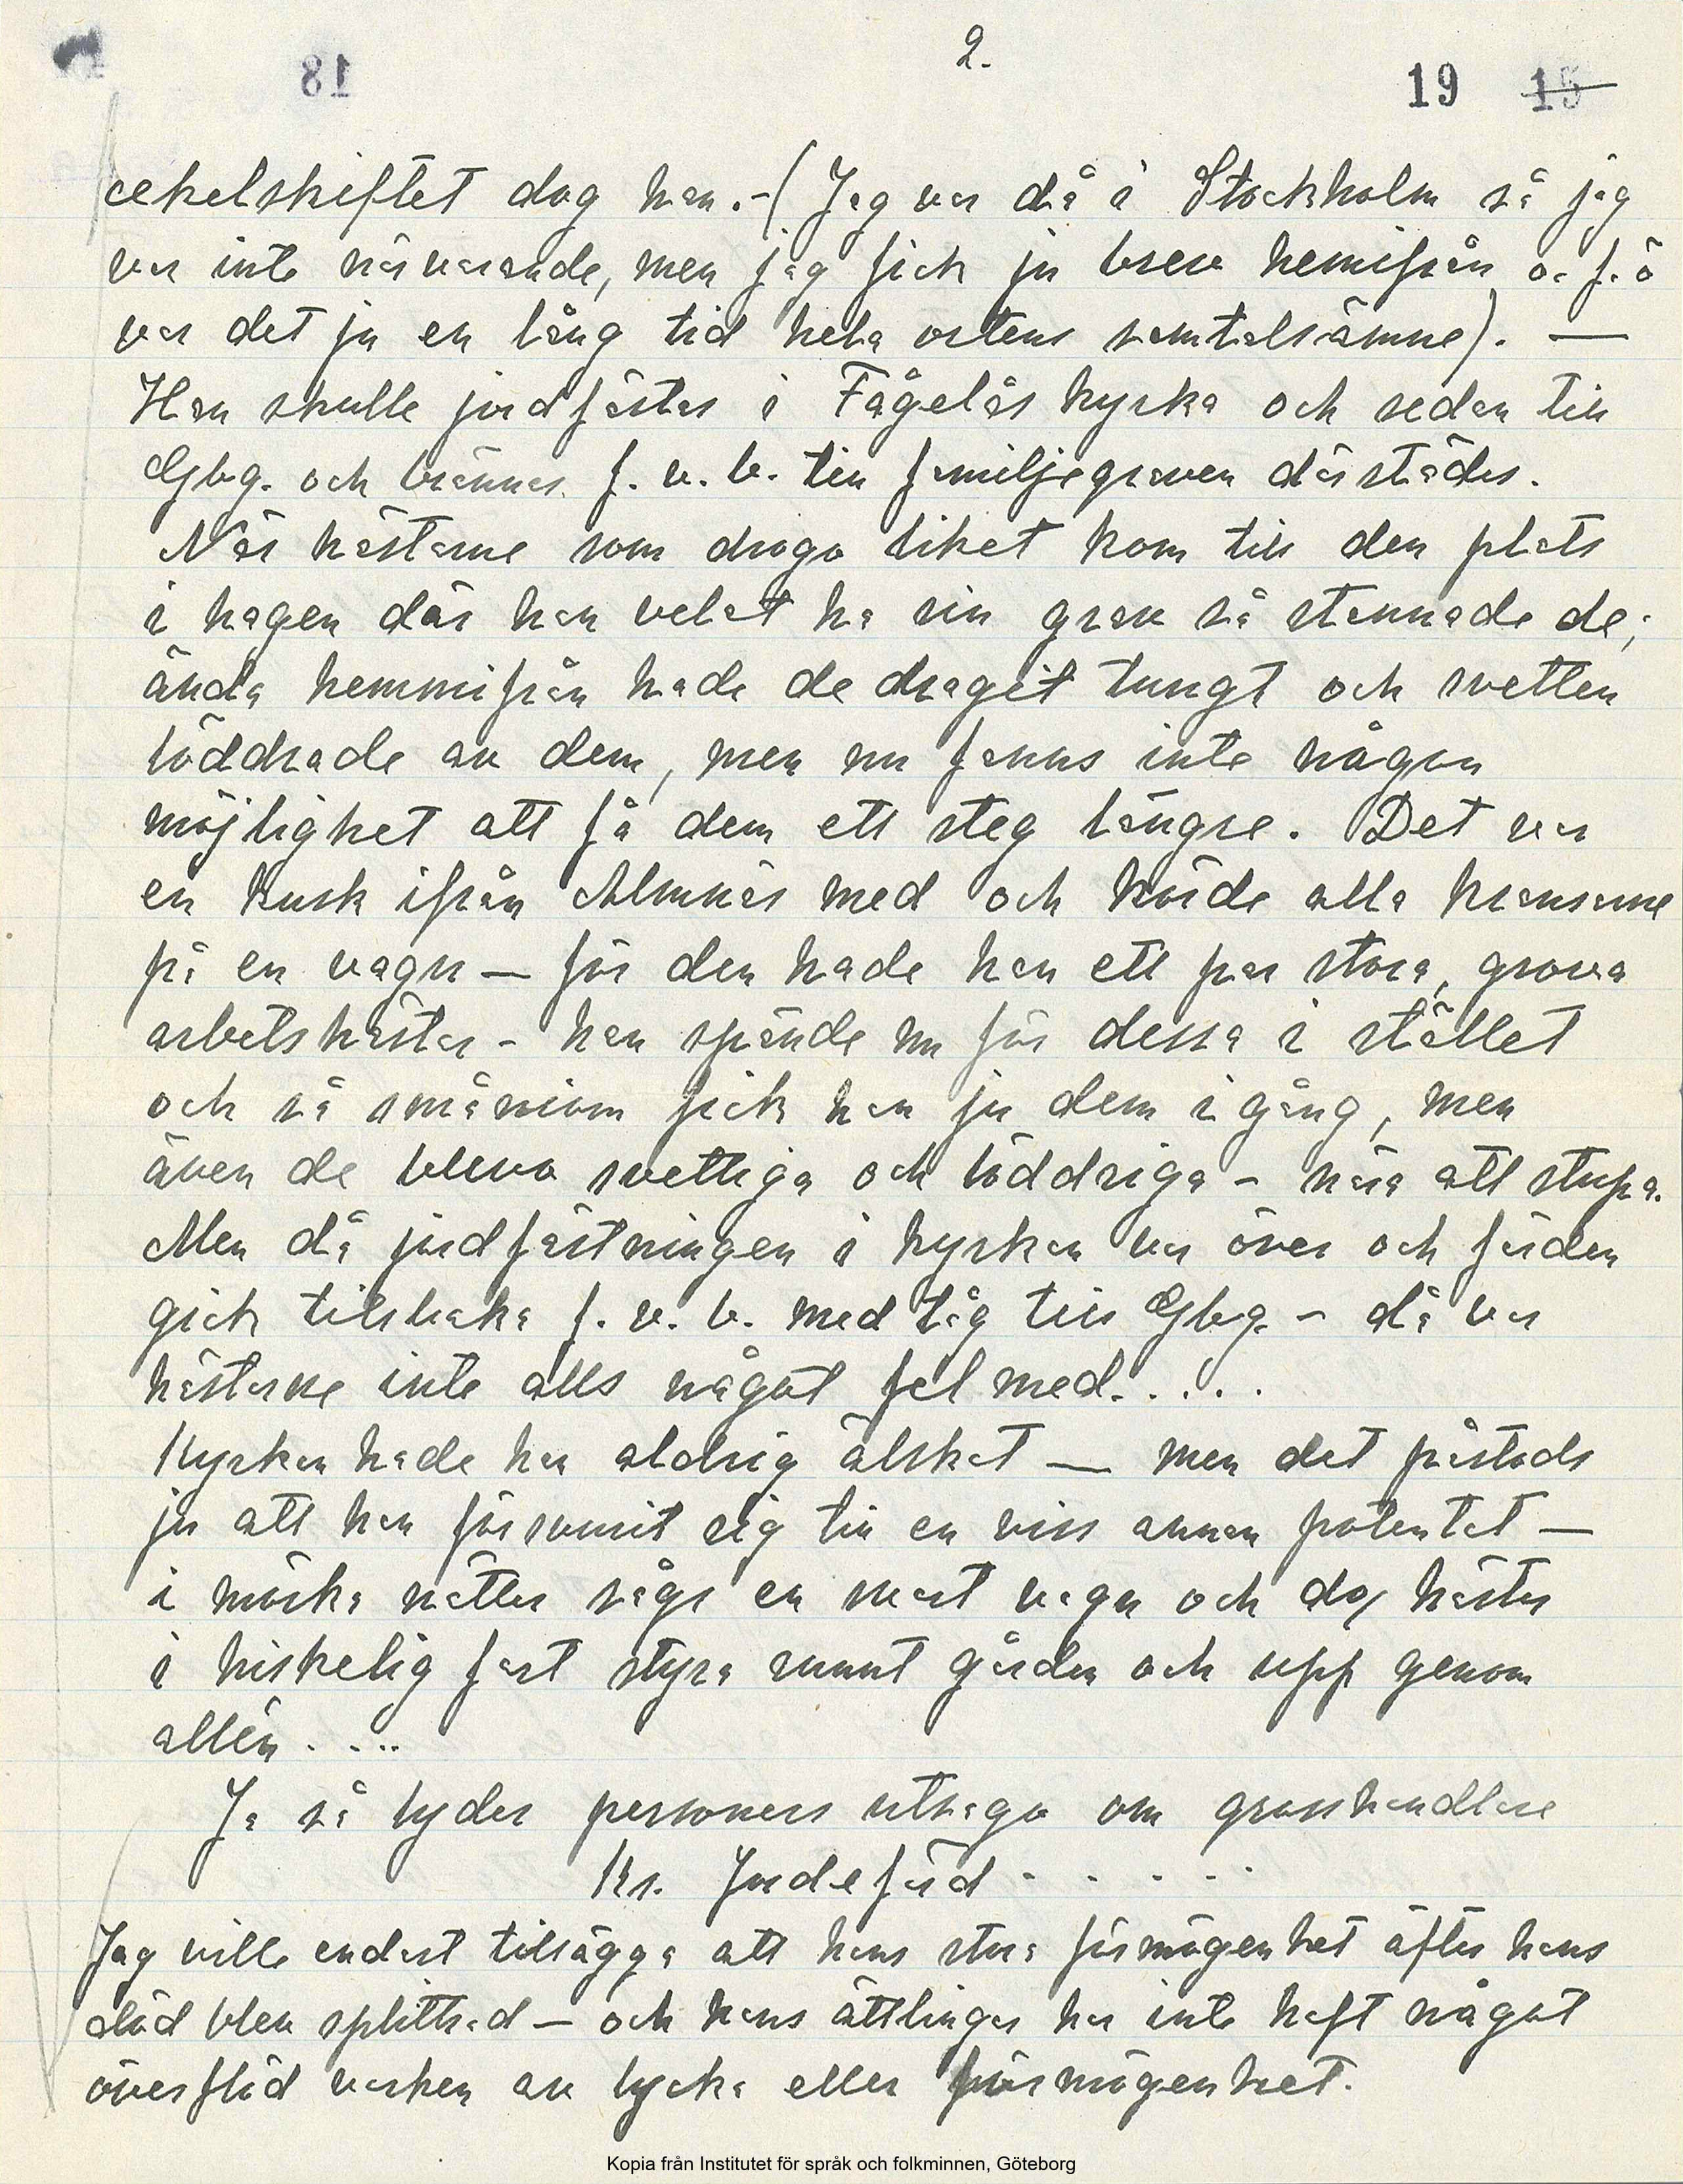 2.
18
19 15
sekelskiftet dog han. - (Jag var då i Stockholm så jag
var inte närvarande, men jag fick ju brev hemifrån o. f. ö
var det ju en lång tid hela ortens samtalsämne). —
Han skulle jordfästas i Fågelås kyrka och sedan till
Gbg. och brännas f. v. b. till familjegraven därstädes.
När hästarne som drogo liket kom till den plats
i hagen där han velat ha sin grav så stannade de;
ända hemmifrån hade de dragit tungt och svetten
löddrade av dem, men nu fanns inte någon
möjlighet att få dem ett steg längre. Det var
en kusk ifrån Almnäs med och körde alla kransarne
på en vagn — för den hade han ett par stora, grova
arbetshästar - han spände nu för dessa i stället
och så småniom fick han ju dem i gång, men
även de blevo svettiga och löddriga - nära att stupa.
Men då jordfästningen i kyrkan var över och färden
gick tillbaka f. v. b. med tåg till Gbg. - då var
hästarne inte alls något fel med. . . . .
Kyrkan hade han aldrig älskat — men det påstods
ju att han försvurit sig till en viss annan potentat —
i mörka nätter sågs en svart vagn och do/ hästar
i hiskelig fart styra runnt gården och upp genom
allén. . . .
Ja så lyder personers utsago om grosshandlare
Kr. Jordefärd . . . . .
Jag ville endast tillägga att hans stora förmögenhet äfter hans
död blev splittrad — och hans ättlingar har inte haft något
överflöd varken av lycka eller förmögenhet.
Kopia från Institutet för språk och folkminnen, Göteborg